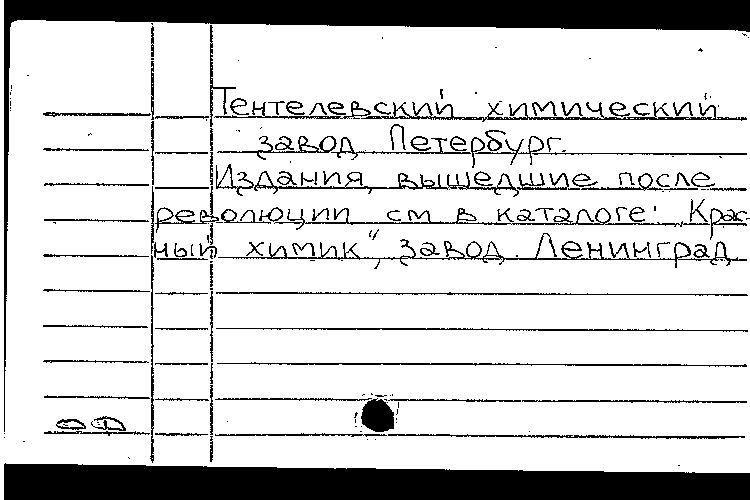 Тентелевский химический
завод Петербург.
Издания, вышедшие после
революции см в каталоге: „Крас
ный химик“, завод. Ленинград